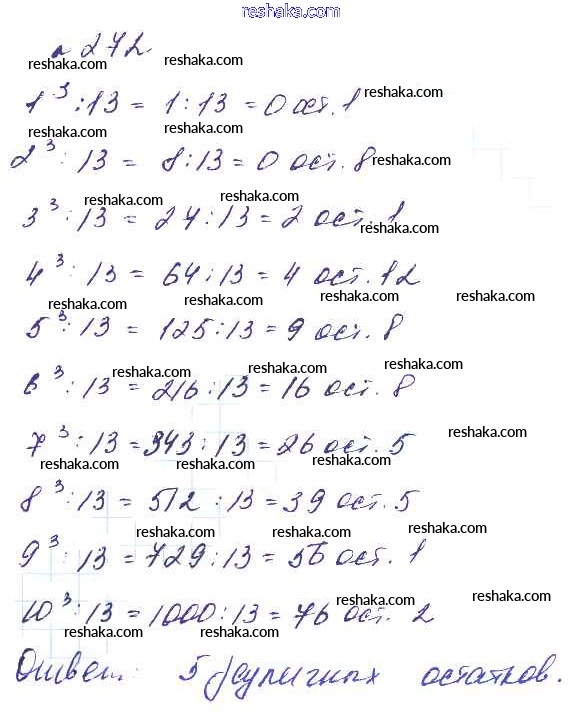 reshaka.com
n 272.
reshaka.com reshaka.com
1³ : 13 = 1 : 13 = 0 ост. 1 reshaka.com
reshaka.com reshaka.com
2³ : 13 = 8 : 13 = 0 ост. 8 reshaka.com
reshaka.com reshaka.com
3³ : 13 = 27 : 13 = 2 ост. 1
reshaka.com
4³ : 13 = 64 : 13 = 4 ост. 12
reshaka.com reshaka.com reshaka.com
5³ : 13 = 125 : 13 = 9 ост. 8
reshaka.com reshaka.com reshaka.com
6³ : 13 = 216 : 13 = 16 ост. 8
7³ : 13 = 343 : 13 = 26 ост. 5 reshaka.com
reshaka.com reshaka.com
8³ : 13 = 512 : 13 = 39 ост. 5
reshaka.com reshaka.com reshaka.com
9³ : 13 = 729 : 13 = 56 ост. 1
reshaka.com reshaka.com
10³ : 13 = 1000 : 13 = 76 ост. 2
reshaka.com reshaka.com
Ответ: 5 различных остатков.